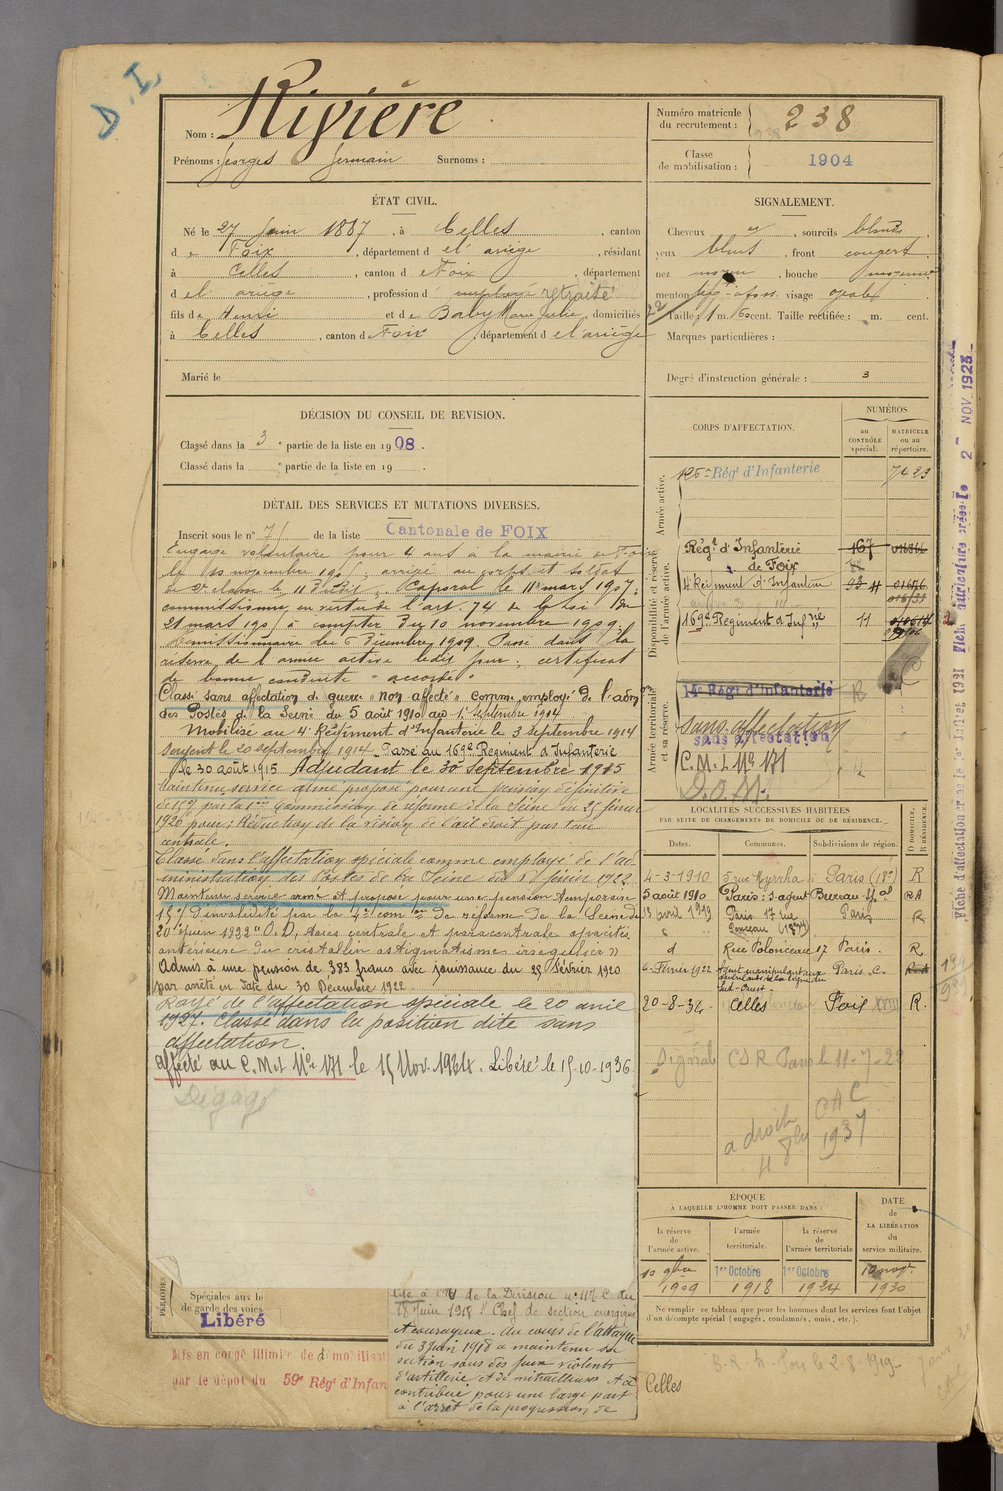 D. I.
Nom : Rivière
Prénoms : Georges Germain Surnoms :
Numéro matricule du recrutement : 238
Classe de mobilisation : 1904
ÉTAT CIVIL.
Né le 27 Juin 1887, à Celles, canton
de Foix, département de l'Ariège, résidant
à Celles, canton de Foix, département
de l'Ariège, profession d employé retraité
fils de Henri et de Baby Marie Julie, domiciliés
à Celles, canton de Foix, département de l'ariège
Marié le
SIGNALEMENT.
Cheveux, sourcils blonds
yeux bleus, front couvert
nez moyen, bouche moyenne
menton visage ovale
Taille : 1 m. 60 cent. Taille rectifiée : m. cent.
Marques particulières :
Degré d'instruction générale : 3
DÉCISION DU CONSEIL DE REVISION.
Classé dans la 3e partie de la liste en 1908.
Classé dans la e partie de la liste en 19 .
DÉTAIL DES SERVICES ET MUTATIONS DIVERSES.
Inscrit sous le n° 71 de la liste Cantonale de FOIX
Engagé volontaire pour 4 ans à la mairie de Foix
le 10 novembre ; arrivé au corps et soldat
de 2e classe le 11 Caporal le 11 mars 1907 ;
commissionné en vertu de l'art. 74 de la loi du
21 mars 1905 à compter du 10 novembre 1909.
Démissionnaire le 6 Décembre 1909. Passé dans la
réserve de l'armée active ledit jour ; certificat
de bonne conduite "accordé"
Classé sans affectation de guerre "non affecté" comme employé de l'adon
des Postes de la Seine du 5 août 1910 au 1er septembre 1914
Mobilisé au 4e Régiment d'Infanterie le 3 septembre 1914
Sergent le 20 septembre 1914. Passé au 169e Régiment d'Infanterie
le 30 août 1915 Adjudant le 30 Septembre 1915
Maintenu service armé proposé pour une pension définitive
de 15% par la 1ère Commission de réforme de la Seine du 25 février
1920 pour : Réduction de la vision de l'œil droit par taie
centrale.
Classé dans l'affectation spéciale comme employé de l'ad-
ministration des Postes de la Seine du février 1922
Maintenu service armé et proposé pour une pension temporaire
15% d'invalidité par la 4e comion de réforme de la Seine du
20 juin 1922 "O.D, taies centrale et paracentrale opacités
antérieures du cristallin astigmatisme irrégulier"
Admis à une pension de 383 francs avec jouissance du 25 Février 1920
par arrêté en date du 30 Décembre 1922.
Rayé de l'affectation spéciale le 20 avril
1927. Classé dans la position dite sans
affectation.
Affecté au C.M.I. N° 171 le 15 Nov. 1934. Libéré le 15-10-1936
Dégagé
CORPS D'AFFECTATION.
NUMÉROS
au CONTRÔLE spécial.
MATRICULE ou au répertoire.
Armée active.
125e Régt d'Infanterie 7423
Disponibilité et réserve de l'armée active.
Régt d'Infanterie 167
de Foix
4e Régiment d'Infanterie
169e Régiment d'Infrie 11
Armée territoriale et sa réserve.
14e Régt d'Infanterie
Sans affectation
sans affectation
C.M.I. N° 171
D.O.M.
LOCALITÉS SUCCESSIVES HABITÉES
PAR SUITE DE CHANGEMENTS DE DOMICILE OU DE RÉSIDENCE.
Dates. Communes. Subdivisions de région. D DOMICILE. R RÉSIDENCE.
4-3-1910 5 rue Myrrha à Paris (18e) R
5 août 1910 Paris : s. agent Bureau RA
13 avril 1919 Paris 17 rue Paris R
d Rue Polonceau 17 Paris. R
6-Février 1922 Agent manipulant aux Paris. C. R.A
Sud-Ouest
20-8-34 Celles Foix R.
Signalé CSR Paris le 11-7-22
a droit CAC
1937
ÉPOQUE
À LAQUELLE L'HOMME DOIT PASSER DANS :
la réserve de l'armée active.
l'armée territoriale.
la réserve de l'armée territoriale
DATE de LA LIBÉRATION du service militaire.
10 9bre 1909
1er Octobre 1918
1er Octobre 1924
10 nov. 1930
Ne remplir ce tableau que pour les hommes dont les services font l'objet
d'un décompte spécial (engagés, condamnés, omis, etc.).
PÉRIODES
Spéciales aux h
de garde des voies
Libéré
Mis en congé illimité de démobilisat
par le dépôt du 59e Régt d'Infan
de la Division n° 117 C du
18 Juin 1918 : Chef de section énergique
et courageux. Au cours de l'attaque
du 3 Juin 1918 a maintenu sa
section sous des feux violents
d'artillerie et de mitrailleuses et a
contribué pour une large part
à l'arrêt de la progression de
Celles
2 NOV. 1923